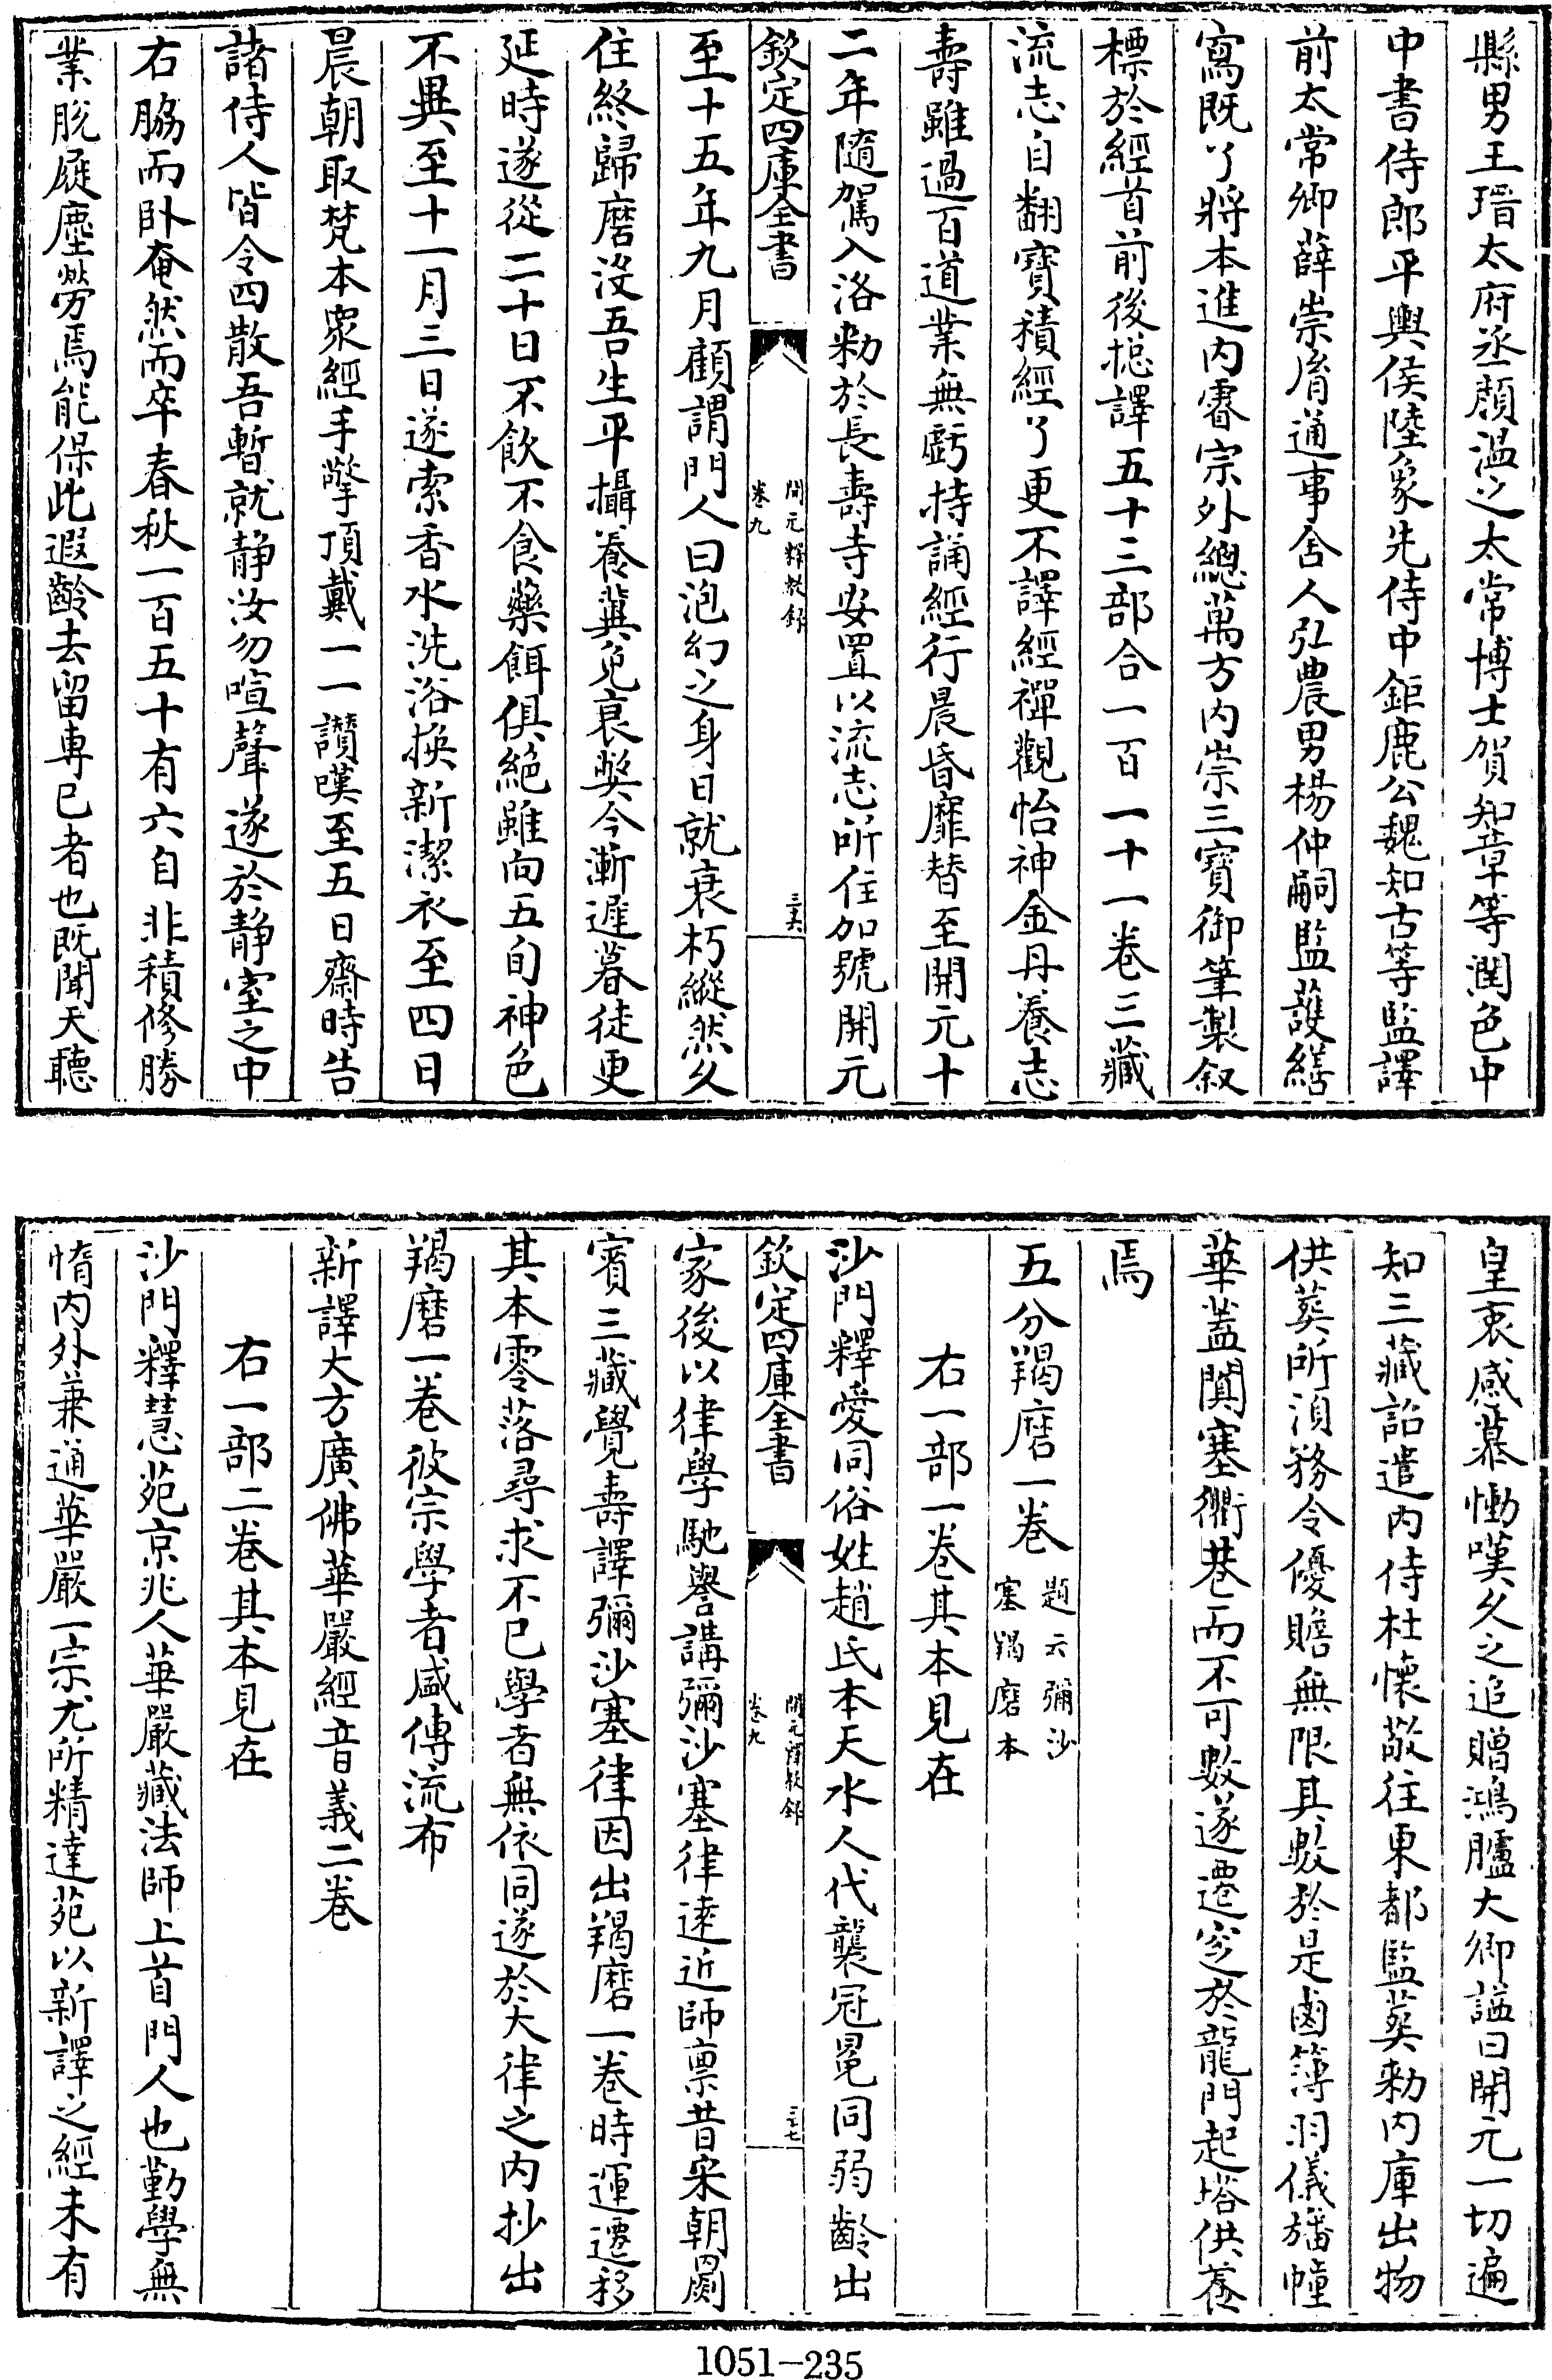 縣男王瑨太府丞顏溫之太常博士賀知章等潤色中
中書侍郎平輿侯陸象先侍中鉅鹿公魏知古等監譯
前太常卿薛崇胤通事舍人弘農男楊仲嗣監護繕
寫既了將本進內睿宗外總萬方內崇三寶御筆製叙
標於經首前後揔譯五十三部合一百一十一卷三藏
流志自翻寶積經了更不譯經禪觀怡神金丹養志
壽雖過百道業無虧持誦經行晨昏靡替至開元十
二年隨駕入洛勑於長壽寺安置以流志所住加號開元
欽定四庫全書
開元釋教錄
卷九
三十六
至十五年九月顧謂門人曰泡幻之身日就衰朽縱然久
住終歸磨沒吾生平攝養冀免衰弊今漸遲暮徒更
延時遂從二十日不飲不食藥餌俱絕雖向五旬神色
不異至十一月三日遂索香水洗浴換新潔衣至四日
晨朝取梵本衆經手擎頂戴一一讃嘆至五日齋時告
諸侍人皆令四散吾暫就靜汝勿喧聲遂於靜室之中
右脇而卧奄然而卒春秋一百五十有六自非積修勝
業脫屣塵勞焉能保此遐齡去留專已者也既聞天聽
皇衷感慕慟嘆久之追贈鴻臚大卿諡曰開元一切遍
知三藏詔遣內侍杜懷敬往東都監葬勑內庫出物
供葬所須務令優贍無限其數於是鹵簿羽儀旛幢
華蓋闐塞衢巷而不可數遂遷窆於龍門起塔供養
焉
五分羯磨一卷題云彌沙塞羯磨本
右一部一卷其本見在
沙門釋愛同俗姓趙氏本天水人代襲冠冕同弱齡出
欽定四庫全書
開元釋教錄
卷九
三十七
家後以律學馳譽講彌沙塞律逺近師禀昔宋朝罽
賓三藏覺壽譯彌沙塞律因出羯磨一卷時運遷移
其本零落尋求不已學者無依同遂於大律之內抄出
羯磨一卷彼宗學者咸傳流布
新譯大方廣佛華嚴經音義二卷
右一部二卷其本見在
沙門釋慧苑京兆人華嚴藏法師上首門人也勤學無
惰內外兼通華嚴一宗尤所精達苑以新譯之經未有
1051-235